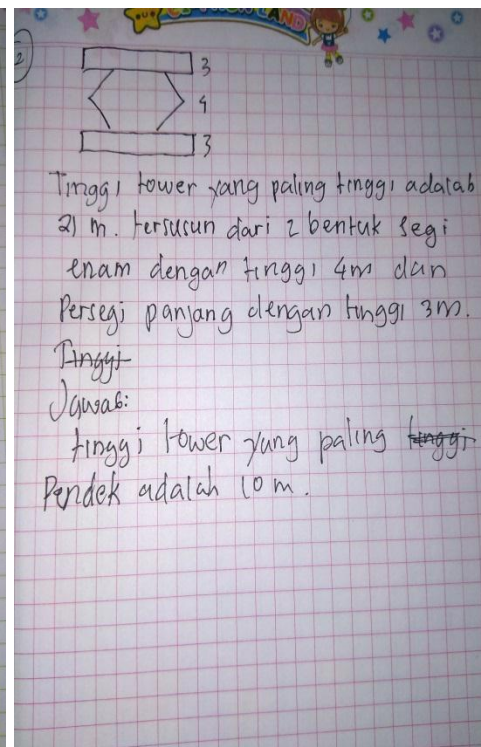 2
3
4
3
Tinggi tower yang paling tinggi adalah
21 m. tersusun dari 2 bentuk segi
enam dengan tinggi 4m dan
Persegi panjang dengan tinggi 3m.
Tinggi
Jawab:
tinggi tower yang paling tinggi
Pendek adalah 10 m.